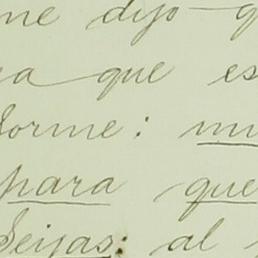 me dijo q
ra que es
forme: mu
para que
Seijas: al